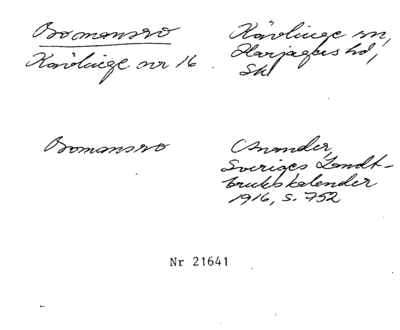 Bomansro
Kävlinge sn,
Kävlinge nr 16
Harjagers hd,
Sk
Bomansro
Osvander,
Sveriges Landt-
brukskalender
1916, s. 752
Nr 21641